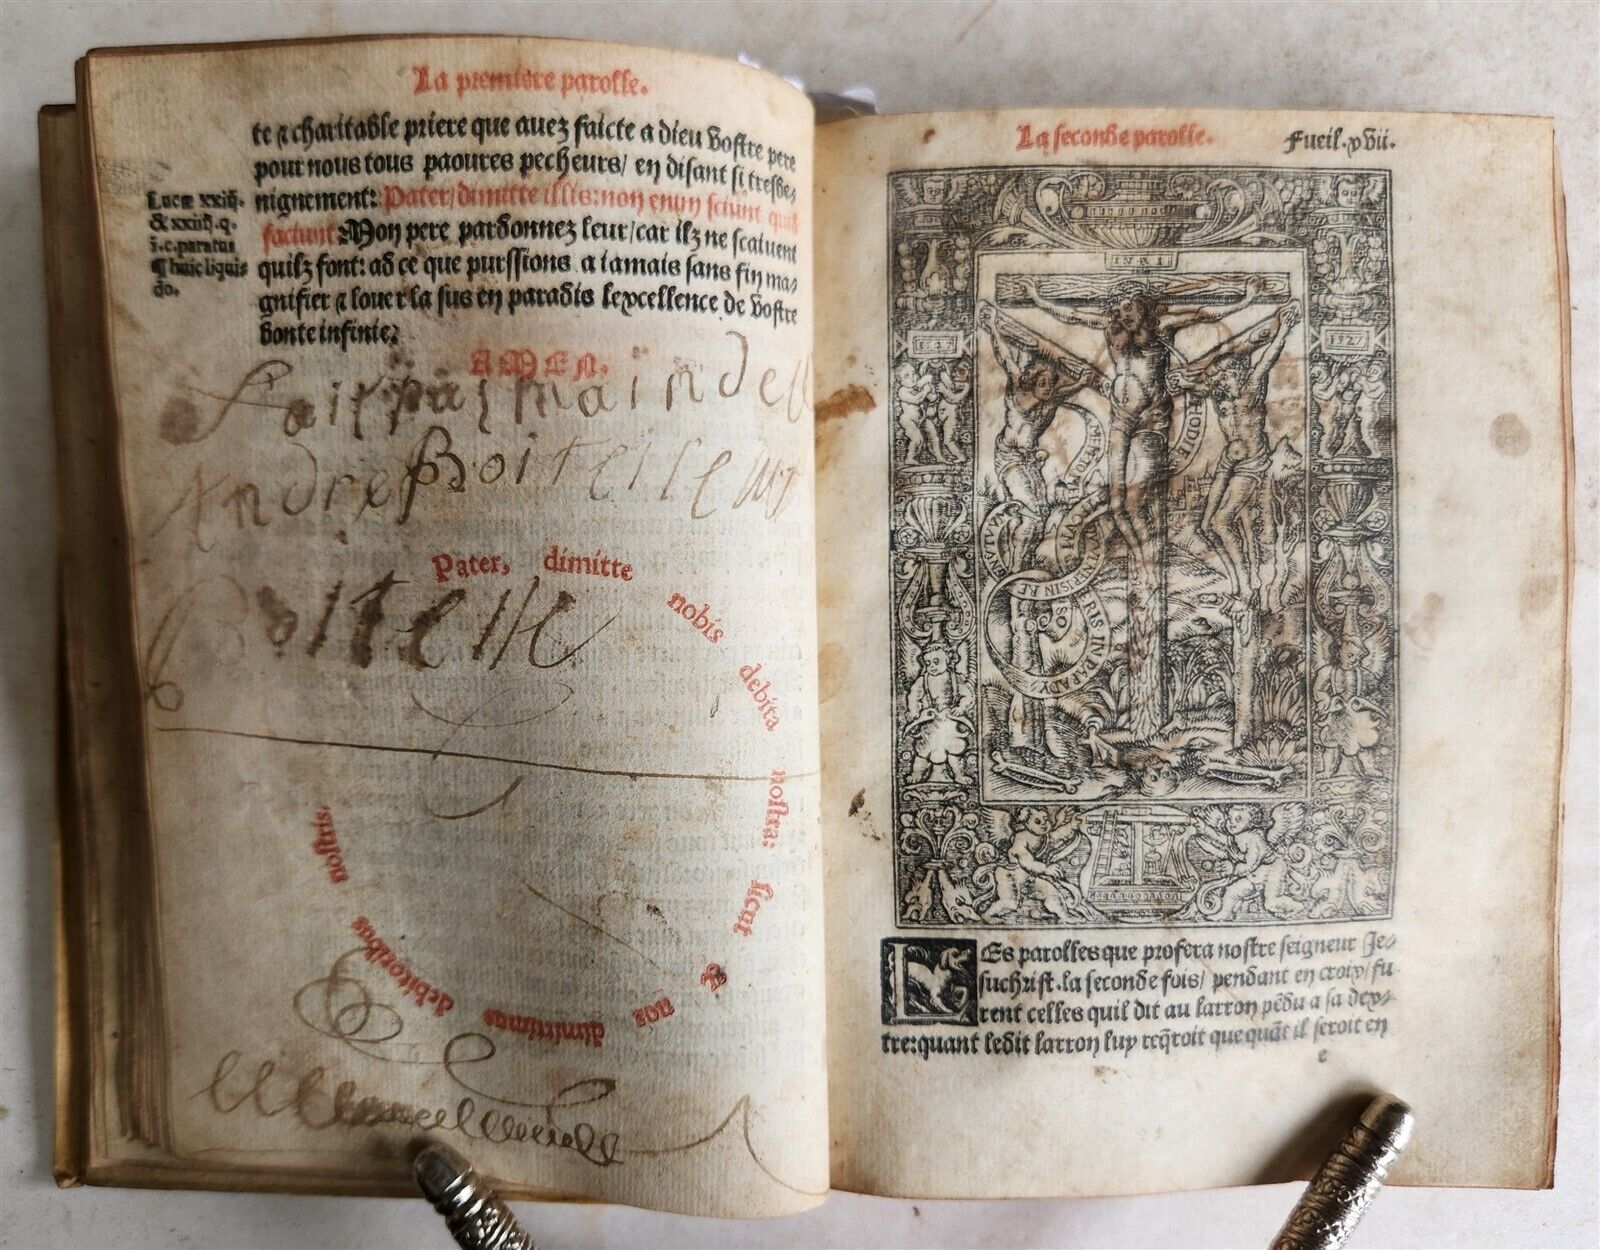 La premiere parolle.
te & charitable priere que auez faicte a dieu vostre pere
pour nous tous paoures pecheurs/ en disant si tresbe-
nignement: Pater/dimitte illis: non enim sciunt quid
faciunt. Mon pere pardonnez leur/car ilz ne scaiuent
quilz font: ad ce que puissions a iamais sans fin ma-
gnifier & louer la sus en paradis lexcellence de vostre
bonte infinie.
AMEN.
Lucæ xxiij.
& xxiiij. q.
i. c. paratus
¶ huic liqui-
do.
Fait par main de
Andre Boitelle
Boitelle
Pater, dimitte nobis debita nostra: sicut & nos dimittimus debitoribus nostris.
La seconde parolle. Fueil. xvii.
INRI
1527
MEMĒTO MEI
HODIE
MECVM ERIS IN PARADY
SO
Les parolles que profera nostre seigneur Je-
suchrist. la seconde fois/ pendant en croix/ fu-
rent celles quil dit au larron pēdu a sa dex-
tre: quant ledit larron luy req̄roit que quāt il seroit en
e